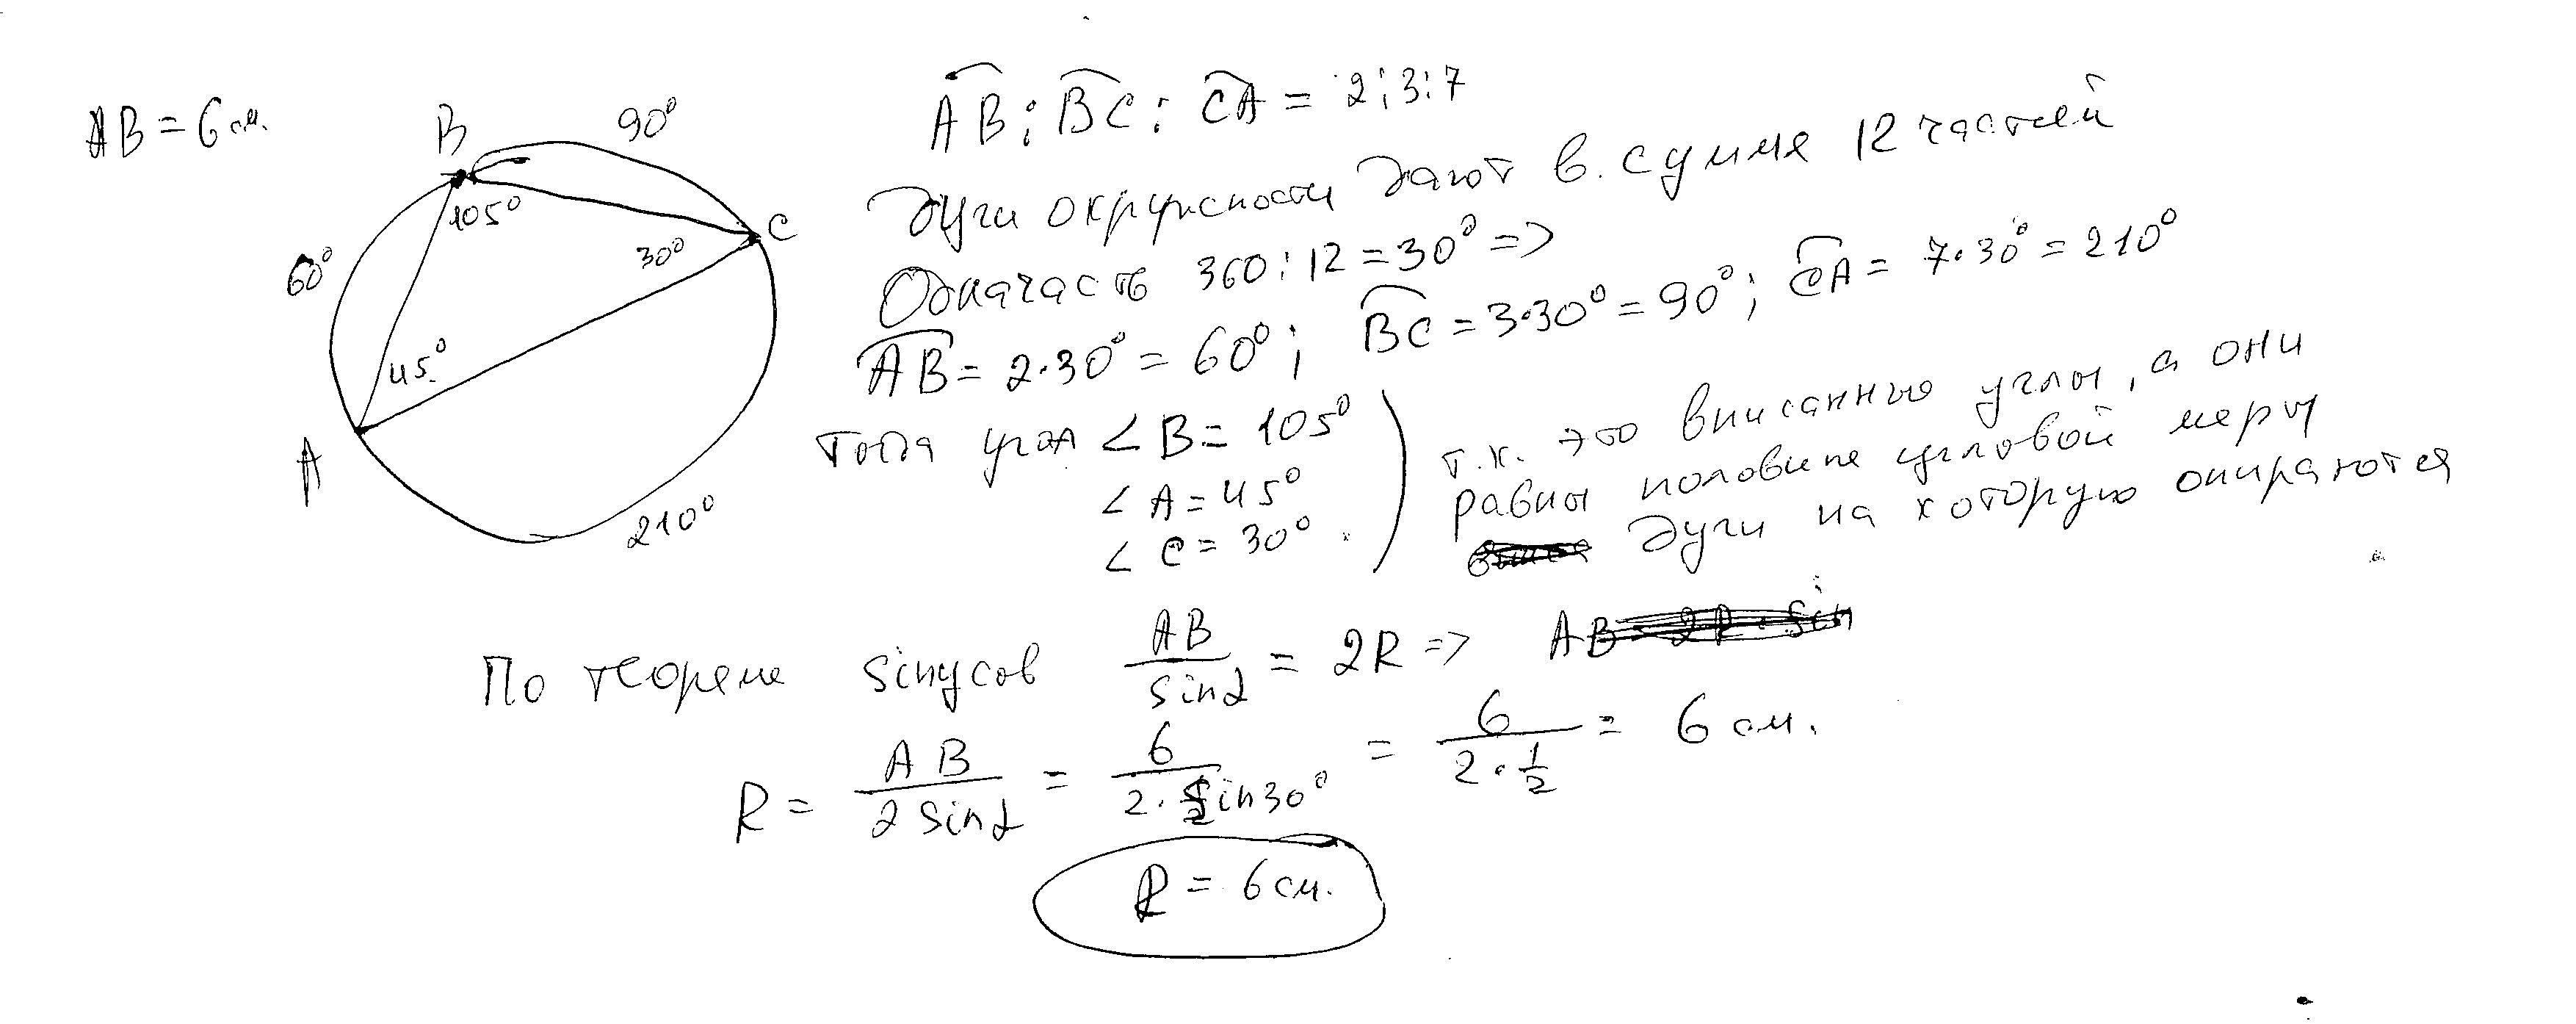 AB = 6 см.
B
90°
105°
C
60°
30°
45°
A
210°
AB : BC : CA = 2:3:7
Дуги окружности дают в сумме 12 частей
Одна часть 360:12 = 30° =>
AB = 2·30° = 60°; BC = 3·30° = 90°; CA = 7·30° = 210°
Тогда угол ∠B = 105°
∠A = 45°
∠C = 30°.
т.к. это вписанные углы, а они
равны половине угловой меры
дуги на которую опираются
По теореме sinусов AB/sinα = 2R => AB = 2R · sin
R = AB/2sinα = 6/2·sin30° = 6/2·1/2 = 6 см.
R = 6 см.